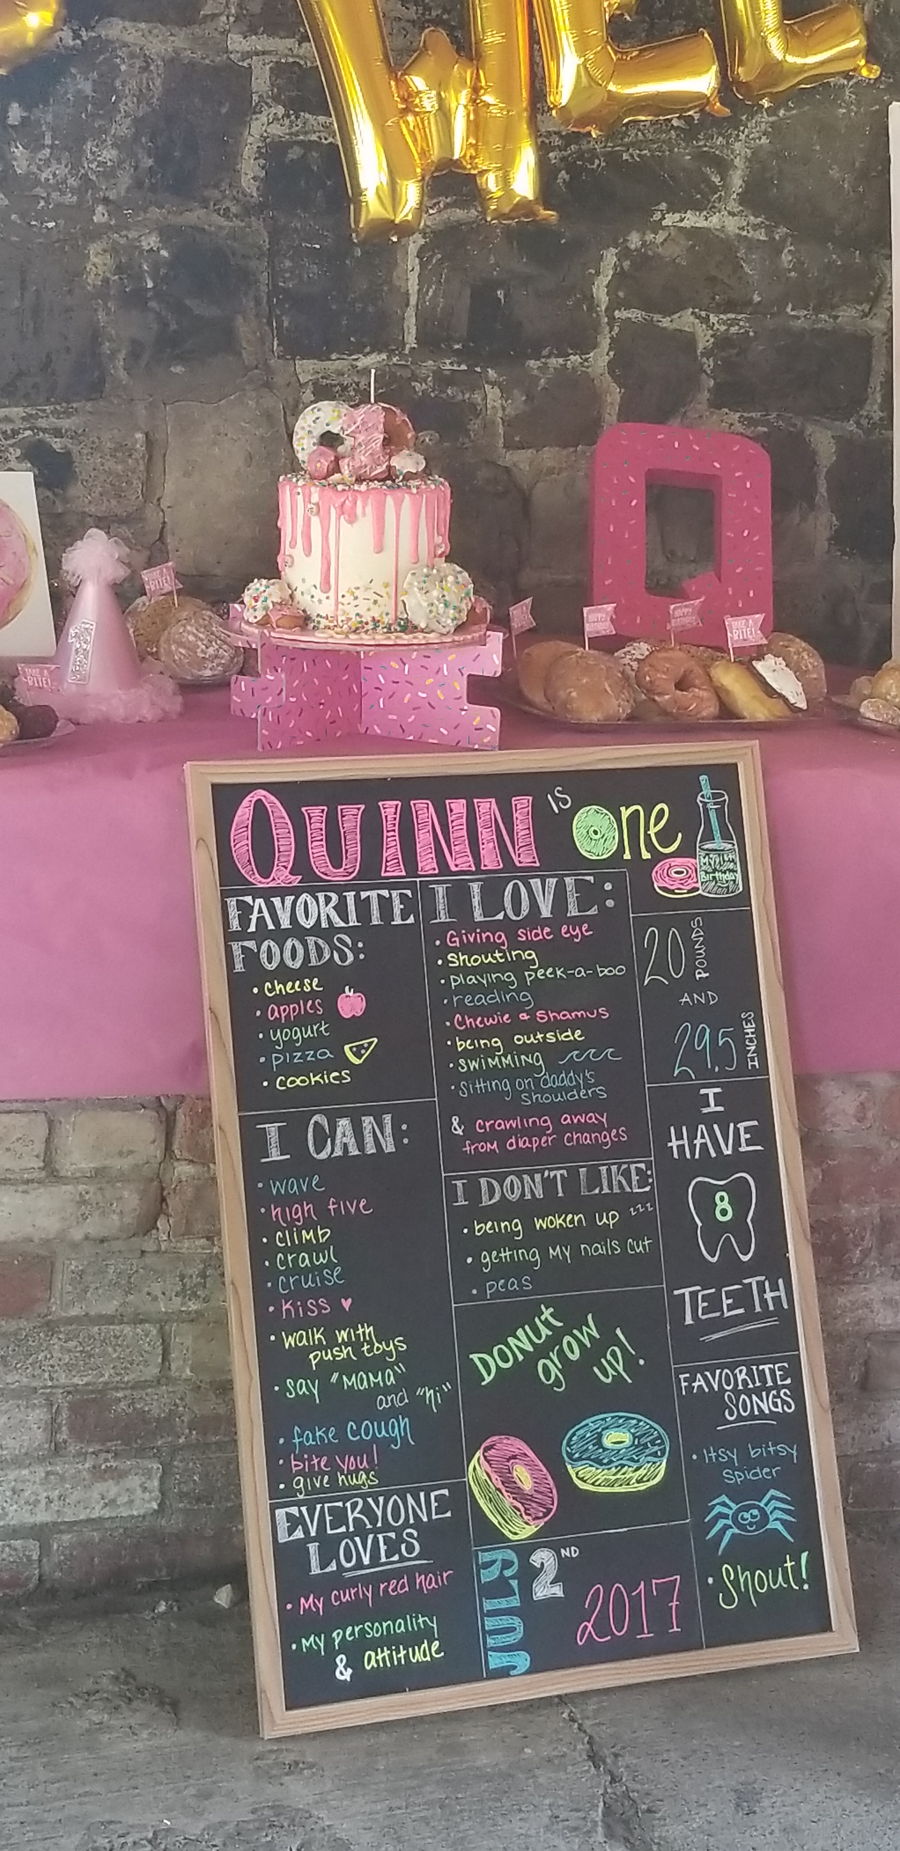 WEE
TAKE A
BITE!
HAPPY
BIRTHDAY
TAKE A
BITE!
Q
QUINN IS One
My 1st
Birthday
FAVORITE
FOODS:
• cheese
• apples
• yogurt
• pizza
• cookies
I LOVE:
• Giving side eye
• Shouting
• playing peek-a-boo
• reading
• Chewie & Shamus
• being outside
• swimming
• sitting on daddy's
shoulders
& crawling away
from diaper changes
20 POUNDS
AND
29.5 INCHES
I CAN:
• wave
• high five
• climb
• crawl
• cruise
• kiss ♥
• walk with
push toys
• say "MAMA"
and "hi"
• fake cough
• bite you!
• give hugs
I DON'T LIKE:
• being woken up zzz
• getting my nails cut
• peas
I
HAVE
8
TEETH
DONUT
grow
up!
FAVORITE
SONGS
• Itsy bitsy
Spider
• Shout!
EVERYONE
LOVES
• My curly red hair
• My personality
& attitude
JULY 2ND 2017